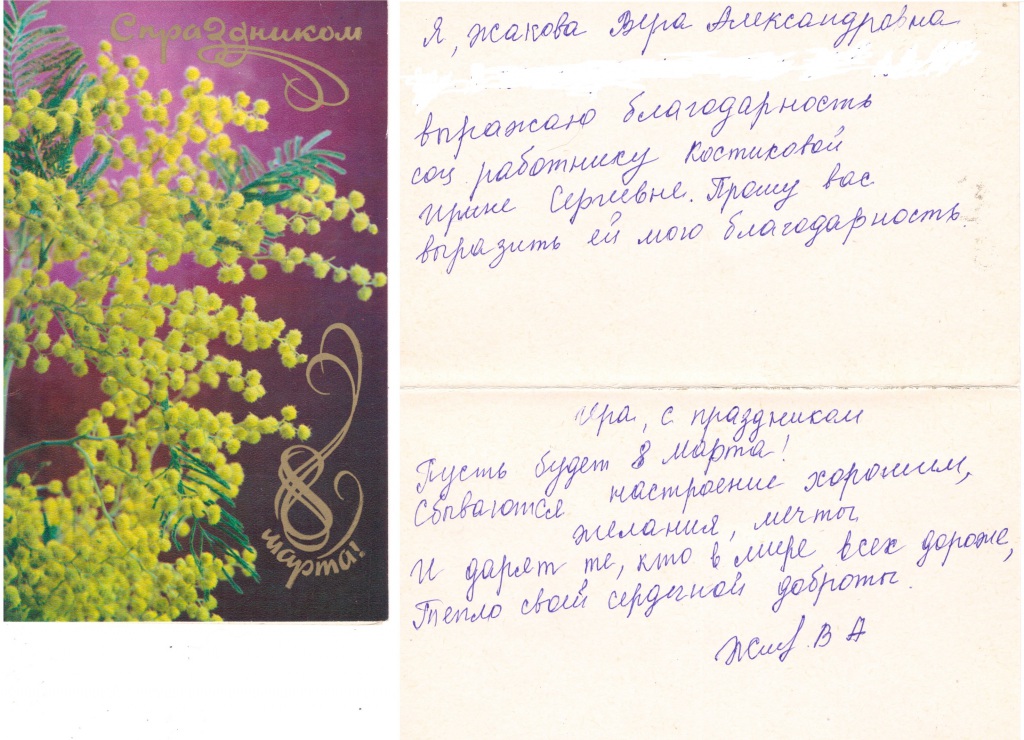 С праздником
8
марта!
Я, Жакова Вера Александровна
выражаю благодарность
соц работнику Костиковой
Ирине Сергеевне. Прошу вас
выразить ей мою благодарность.
Ира, с праздником
8 марта!
Пусть будет настроение хорошим,
Сбываются желания, мечты
И дарят те, кто в мире всех дороже,
Тепло своей сердечной доброты.
В А